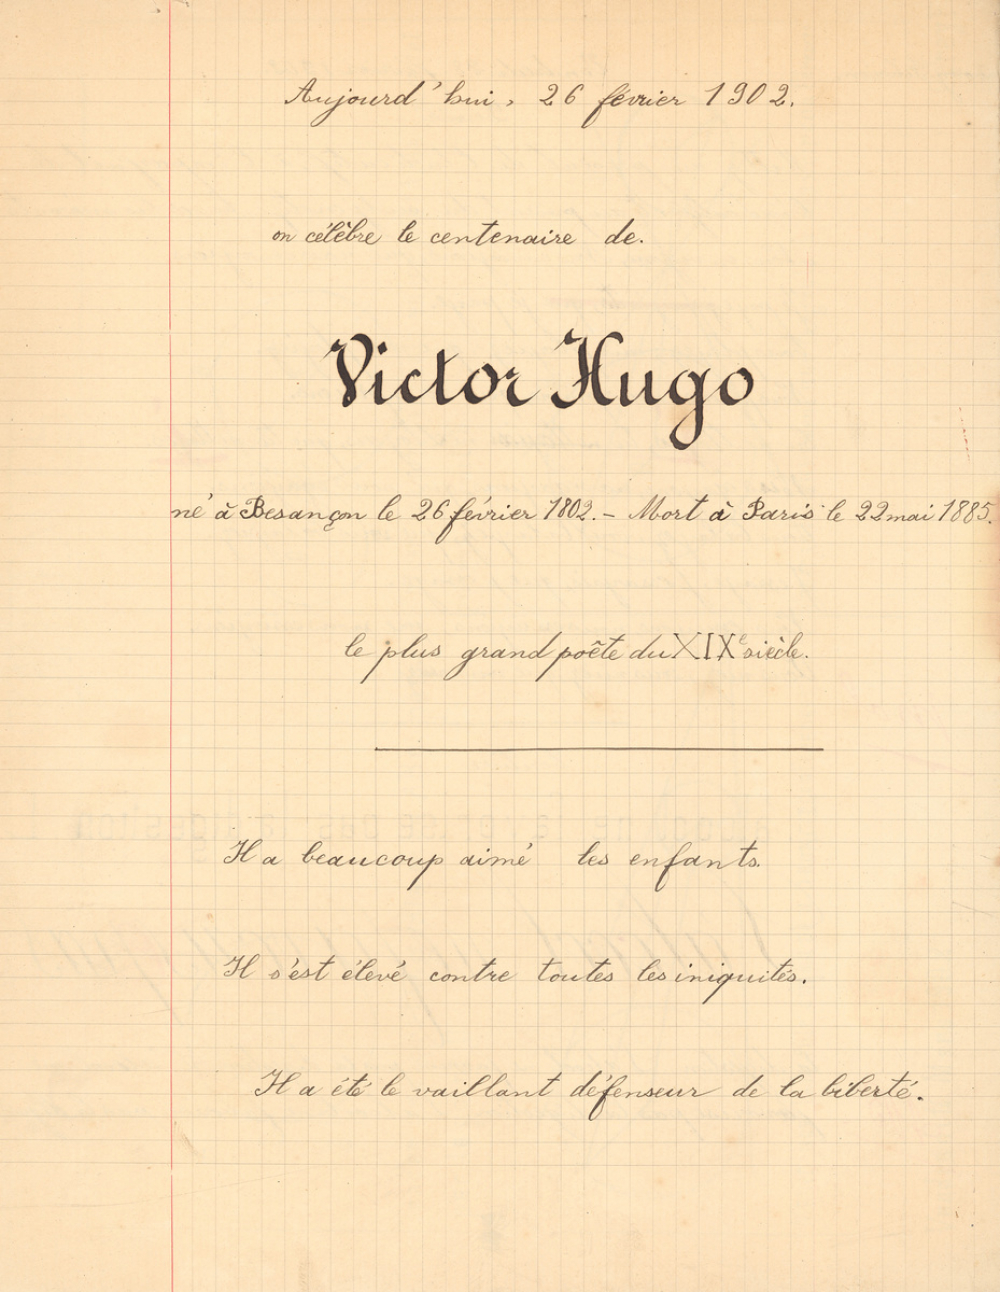 Aujourd'hui, 26 février 1902.
on célèbre le centenaire de.
Victor Hugo
né à Besançon le 26 février 1802. - Mort à Paris le 22 mai 1885.
le plus grand poëte du XIXe siècle.
Il a beaucoup aimé les enfants.
Il s'est élevé contre toutes les iniquités.
Il a été le vaillant défenseur de la liberté.